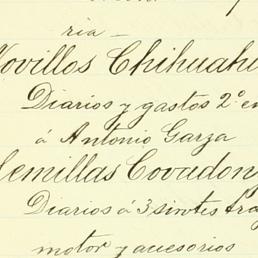 ria
Novillos Chihuahu
Diarios y gastos 2º en
á Antonio Garza
Semillas Covadon
Diarios á 3 sirvtes
motor y accesorios